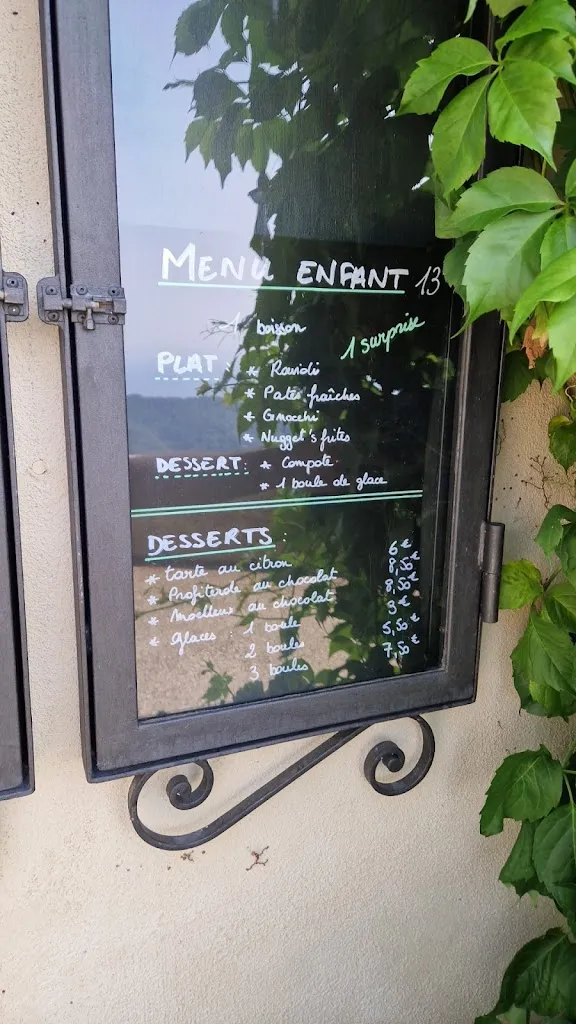 MENU ENFANT 13
1 boisson
1 surprise
PLAT : * Ravioli
* Pates fraîches
* Gnocchi
* Nugget's frites
DESSERT: * Compote
* 1 boule de glace
DESSERTS :
* tarte au citron 6€
* Profiterole au chocolat 8,50€
* Moelleux au chocolat 8,50€
* Glaces : 1 boule 3€
2 boules 5,50€
3 boules 7,50€